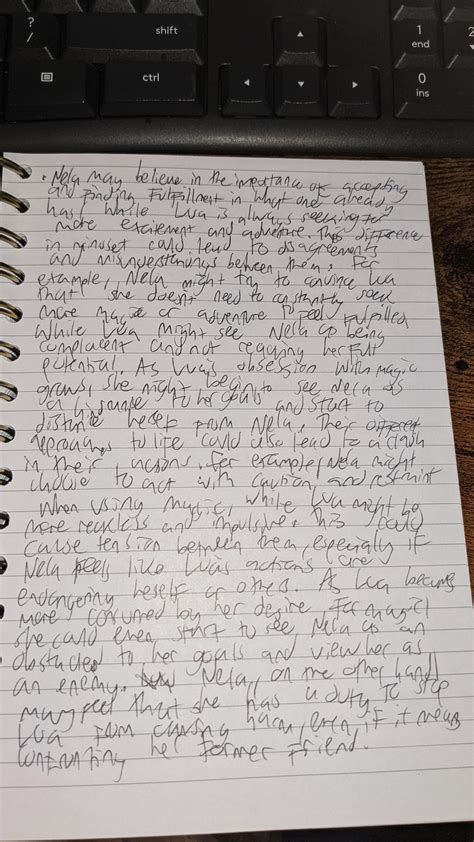 ?
/
shift
ctrl
1
end
0
ins
• Nela may believe in the importance of accepting
and finding fulfillment in what one already
has while Lua is always seeking
more excitement and adventure. This difference
in mindset could lead to disagreements
and misunderstandings between them. For
example, Nela might try to convince Lua
that she doesn't need to constantly seek
more magic or adventure to feel fulfilled
while Lua might see Nela as being
complacent and not reaching her full
potential. As Lua's obsession with magic
grows, she might begin to see Nela as
a hindrance to her goals and start to
distance herself from Nela. Their different
approaches to life could also lead to a clash
in their actions. For example, Nela might
choose to act with caution and restraint
when using magic, while Lua might be
more reckless and impulsive. This could
cause tension between them, especially if
Nela feels like Lua's actions are
endangering herself or others. As Lua becomes
more consumed by her desire for magic
she could even start to see Nela as an
obstacle to her goals and view her as
an enemy. Nela, on the other hand
may feel that she has a duty to stop
Lua from causing harm, even if it means
confronting her former friend.